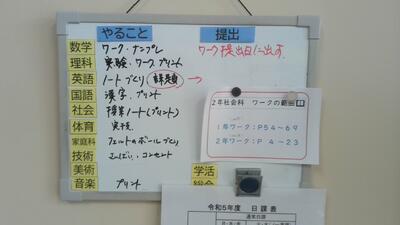 やること
提出
数学 ワーク・ナンプレ
ワーク提出日に出す。
理科 実験、ワークプリント
英語 ノートづくり 課題 →
国語 漢字、プリント
社会 授業ノート(プリント)
体育 実技
家庭科 フェルトのボールづくり
技術 コンセント
美術
音楽 プリント
学活
総合
2年社会科 ワークの範囲
1年ワーク:P54~69
2年ワーク:P 4~23
令和5年度 日課表
通常日課